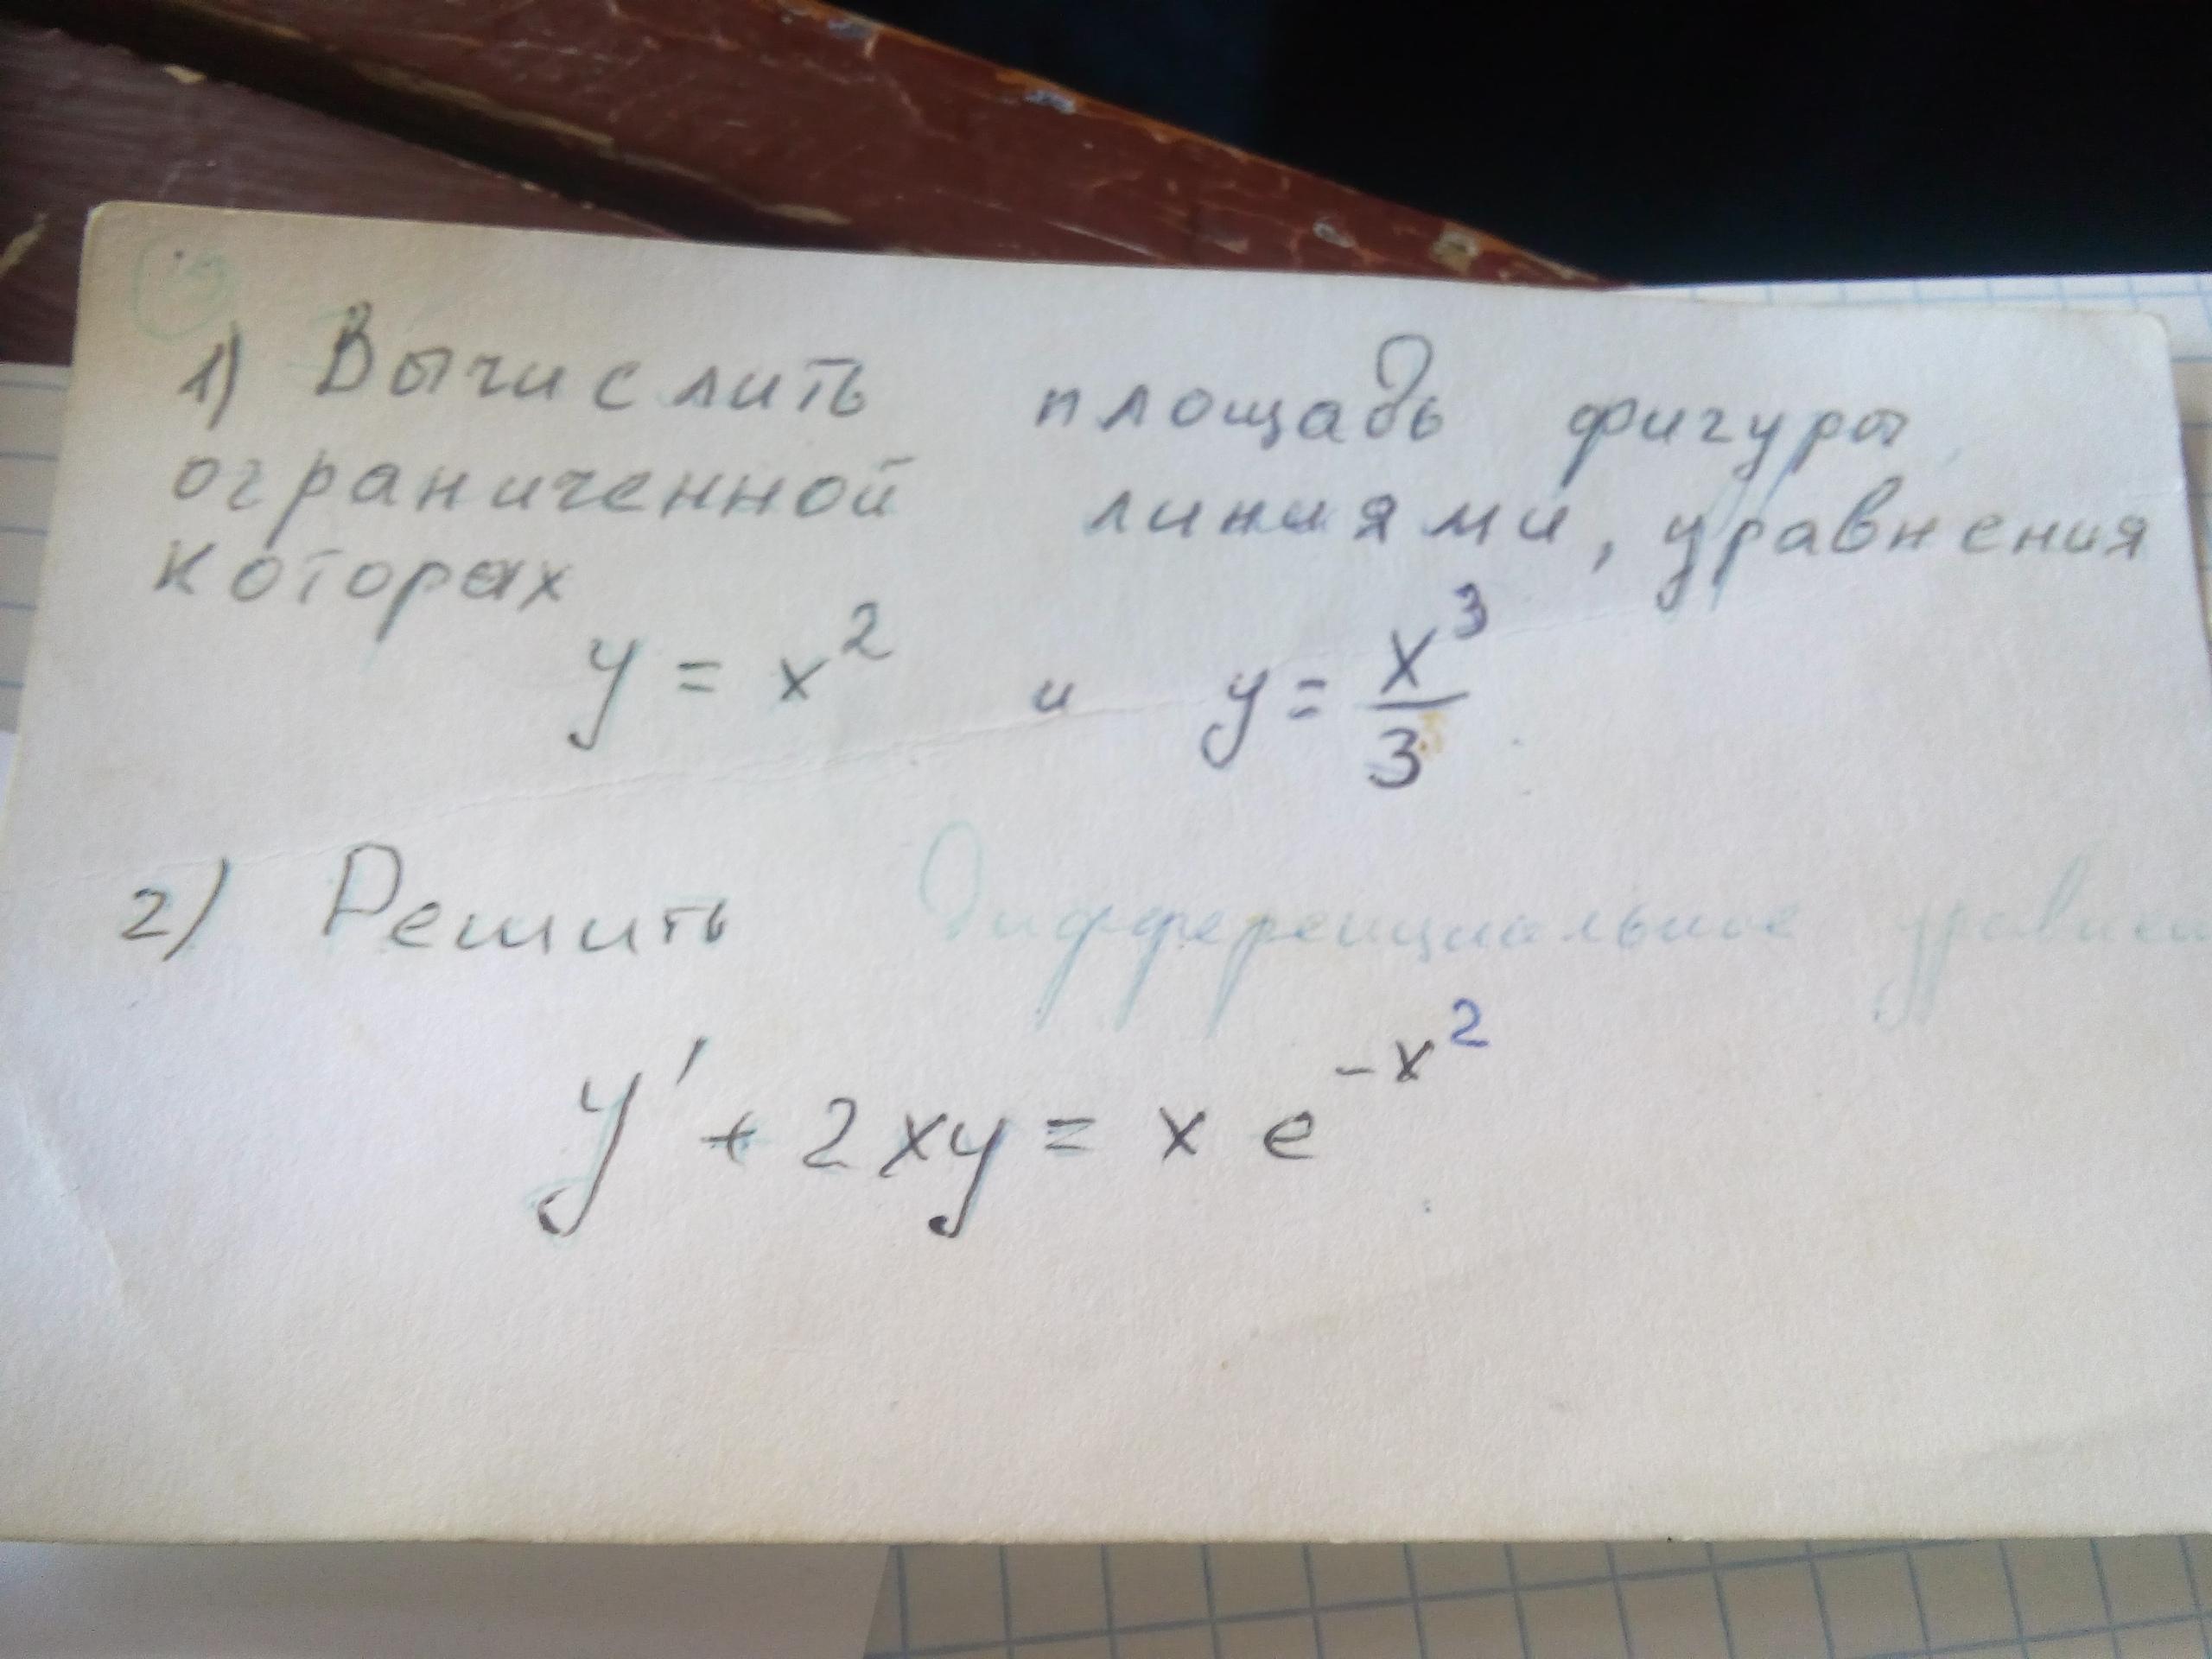 1) Вычислить площадь фигуры
ограниченной линиями, уравнения
которых
y = x² и y = x³/3
2) Решить дифференциальное
y' + 2xy = x e^{-x²}